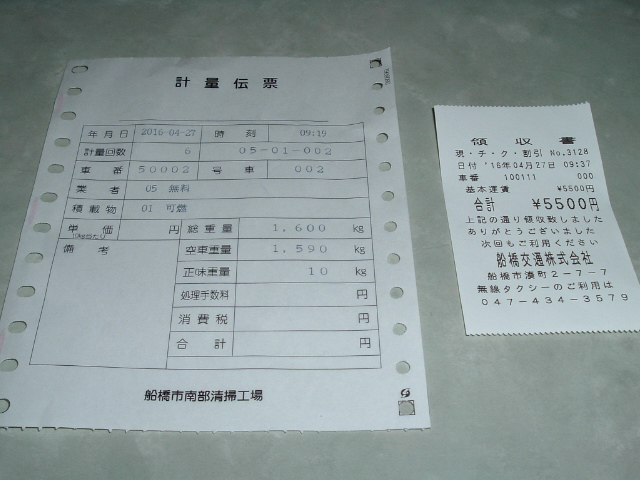 計量伝票
年月日 2016-04-27 時刻 09:19
計量回数 6 05-01-002
車番 50002 号車 002
業者 05 無料
積載物 01 可燃
単価 10kg当たり 円 総重量 1,600 kg
備考 空車重量 1,590 kg
正味重量 10 kg
処理手数料 円
消費税 円
合計 円
船橋市南部清掃工場
領収書
現・チ・ク・割引 No.3128
日付 '16年04月27日 09:37
車番 100111 000
基本運賃 ¥5500円
合計 ¥5500円
上記の通り領収致しました
ありがとうございました
次回もご利用ください
船橋交通株式会社
船橋市湊町2-7-7
無線タクシーのご利用は
047-434-3579